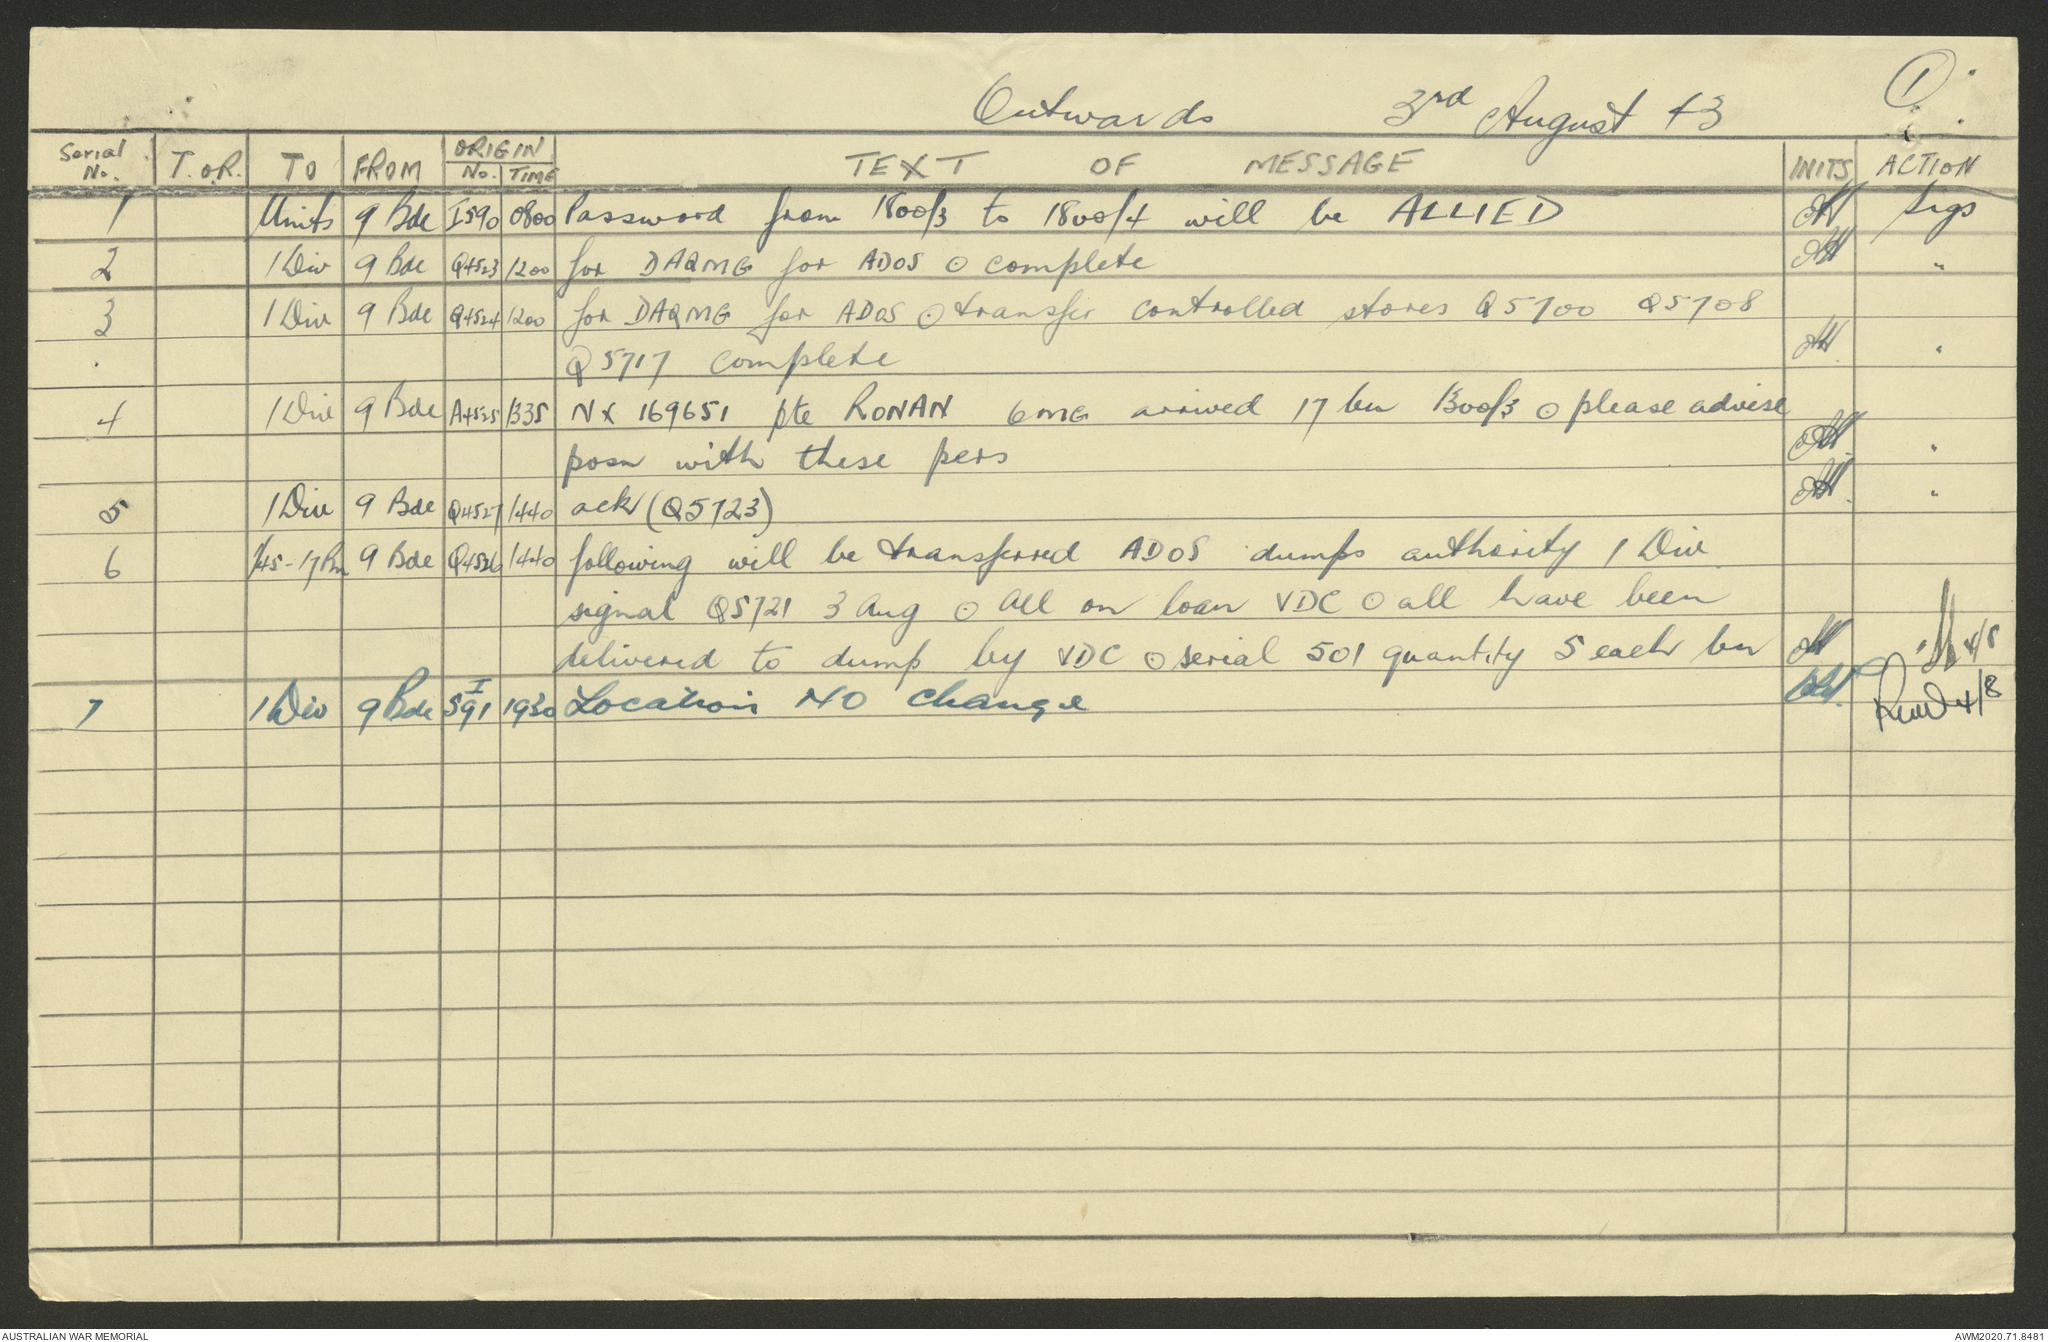 1
Outwards 3rd August 43
Serial No. T.O.R. TO FROM ORIGIN No. TIME TEXT OF MESSAGE INITS ACTION
1 Units 9 Bde I590 0800 Password from 1800/3 to 1800/4 will be ALLIED Sigs
2 1 Div 9 Bde Q4523 1200 for DAQMG for ADOS ⊙ complete "
3 1 Div 9 Bde Q4524 1200 for DAQMG for ADOS ⊙ transfer controlled stores Q5700 Q5708
Q5717 complete "
4 1 Div 9 Bde A4525 1335 NX 169651 pte RONAN 6 MG arrived 17 bn 1300/3 ⊙ please advise
posn with these pers "
5 1 Div 9 Bde Q4527 1440 ack (Q5723) "
6 1/45 - 17 Bn 9 Bde Q4526 1440 following will be transferred ADOS dumps authority 1 Div
signal Q5721 3 Aug ⊙ all on loan VDC ⊙ all have been
delivered to dump by VDC ⊙ serial 501 quantity 5 each bn 4/8
7 1 Div 9 Bde I 591 1930 Location NO change 4/8
AUSTRALIAN WAR MEMORIAL AWM2020.71.8481